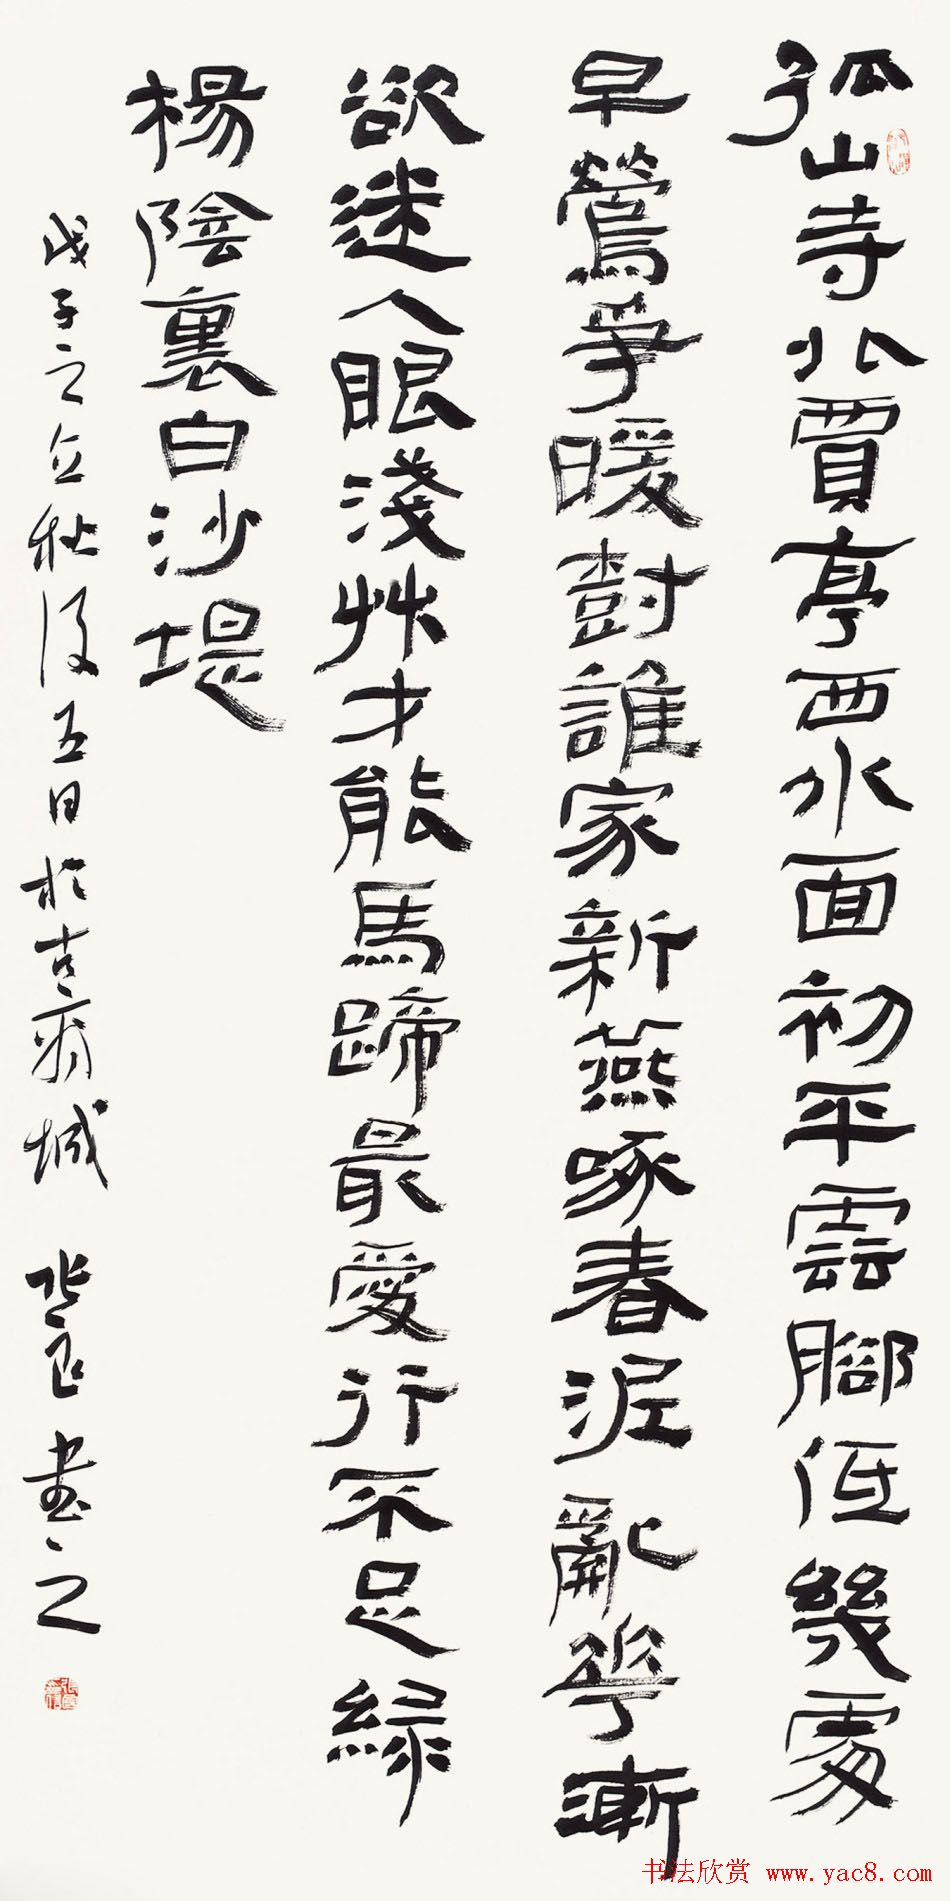 孤山寺北賈亭西水面初平雲腳低幾處
早鶯爭暖樹誰家新燕啄春泥亂花漸
欲迷人眼淺艸才能馬蹄最愛行不足綠
楊陰裏白沙堤
戊子之立秋後五日於古城 書之
书法欣赏 www.yac8.com